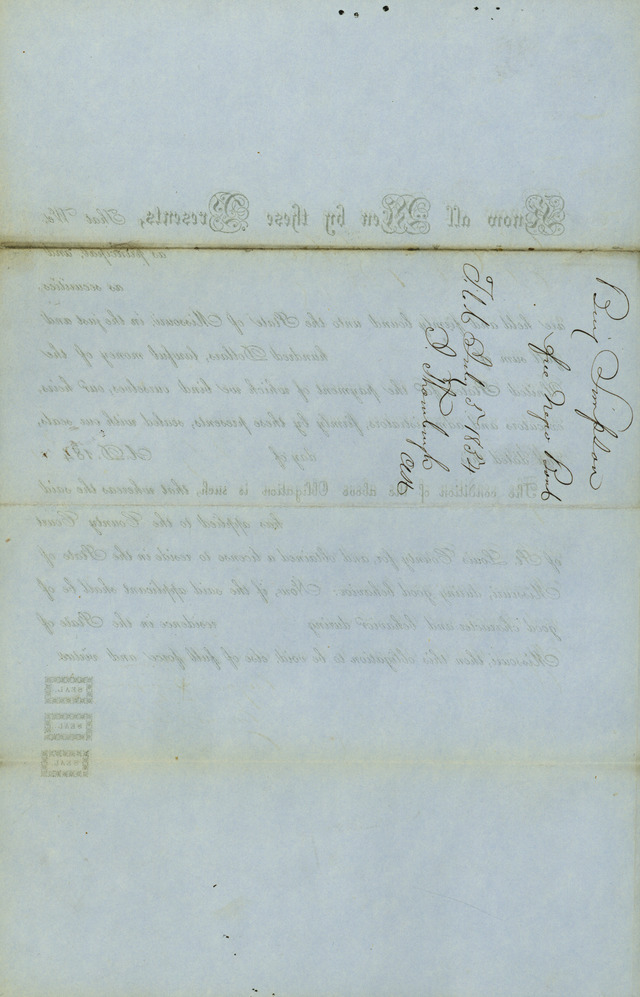 Benj Simpson
free Negro Bond
Filed July 5th 1834
Clk
Know all Men by these Presents, That We
as principal, and
as securities,
are held and firmly bound unto the State of Missouri, in the just and
sum hundred Dollars, lawful money of the
United States, the payment of which we bind ourselves, our heirs,
executors and administrators, firmly by these presents, sealed with our seals,
and dated day of A. D. 18
The condition of the above Obligation is such, that whereas the said
has applied to the County Court
of St. Louis County for, and obtained a license to reside in the State of
Missouri, during good behavior: Now, if the said applicant shall be of
good character and behavior during residence in the State of
Missouri, then this obligation to be void, else of full force and virtue.
SEAL
SEAL
SEAL